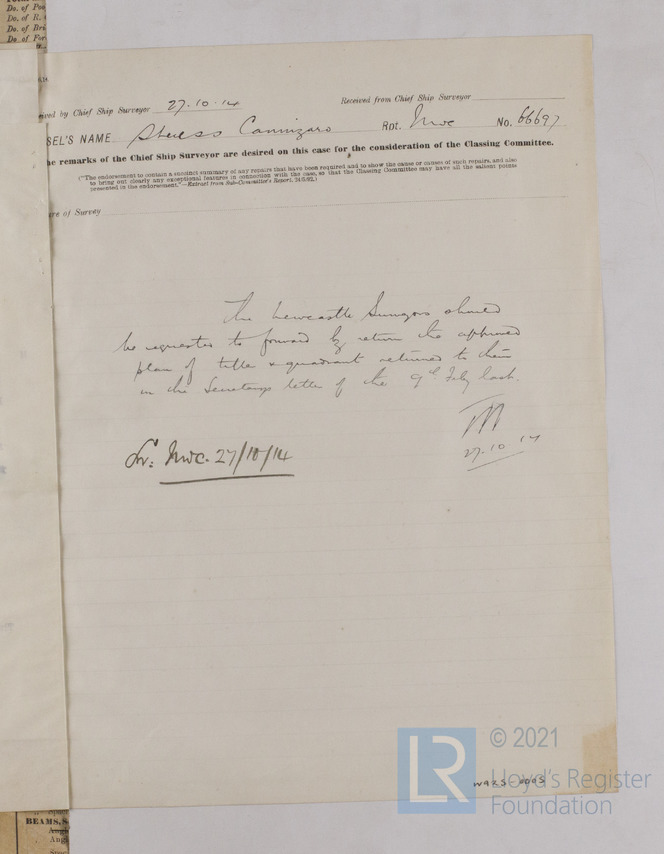 Do. of Poo
Do. of R.
Do. of Bri
Do of For
ived by Chief Ship Surveyor 27.10.14
Received from Chief Ship Surveyor
SEL'S NAME Cannizaro Rpt. Nwc No. 66697
he remarks of the Chief Ship Surveyor are desired on this case for the consideration of the Classing Committee.
("The endorsement to contain a succinct summary of any repairs that have been required and to show the cause or causes of such repairs, and also
to bring out clearly any exceptional features in connection with the case, so that the Classing Committee may have all the salient points
presented in the endorsement."—Extract from Sub-Committee's Report, 24/5/92.)
ure of Survey
The Newcastle Surveyors should
be requested to forward by return the approved
plan of tiller & quadrant returned to them
in the Secretary's letter of the 9th July last.
27.10.14
Nwc. 27/10/14
LR
© 2021
Lloyd's Register
Foundation
W925-0005
BEAMS, S
Angl
Angl